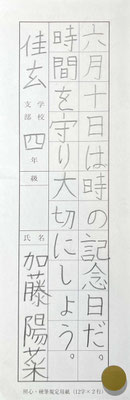 六月十日は時の記念日だ。
時間を守り大切にしよう。
佳玄
学校
支部
四年
級
氏名
加藤陽菜
照心・硬筆規定用紙（12字×2行）